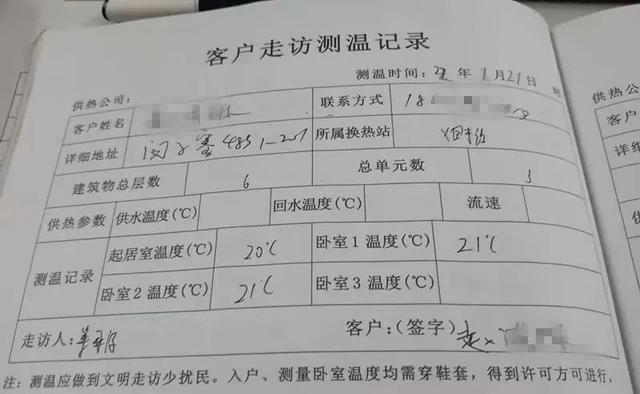 客户走访测温记录
测温时间：22 年 1 月 21 日 时
供热公司：
客户姓名 联系方式 18
详细地址 闵子骞 48 1-201 所属换热站
建筑物总层数 6 总单元数 3
供热参数 供水温度(℃) 回水温度(℃) 流速
测温记录 起居室温度(℃) 20℃ 卧室1温度(℃) 21℃
卧室2温度(℃) 21℃ 卧室3温度(℃)
走访人： 客户：(签字)
注：测温应做到文明走访少扰民。入户、测量卧室温度均需穿鞋套，得到许可方可进行，
供热公
客户
详细
建
供热
测温
走访
注：